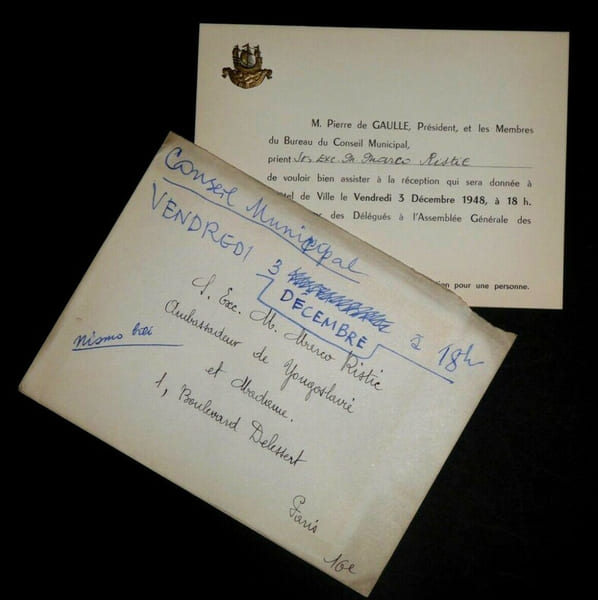 M. Pierre de GAULLE, Président, et les Membres
du Bureau du Conseil Municipal,
prient Son Exc. M. Marco Ristic
de vouloir bien assister à la réception qui sera donnée à
de Ville le Vendredi 3 Décembre 1948, à 18 h.
des Délégués à l'Assemblée Générale des
pour une personne.
Conseil Municipal
VENDREDI 3
DÉCEMBRE à 18h
S. Exc. M. Marco Ristic
Ambassadeur de Yougoslavie
et Madame.
1, Boulevard Delessert
Paris
16e
nismo